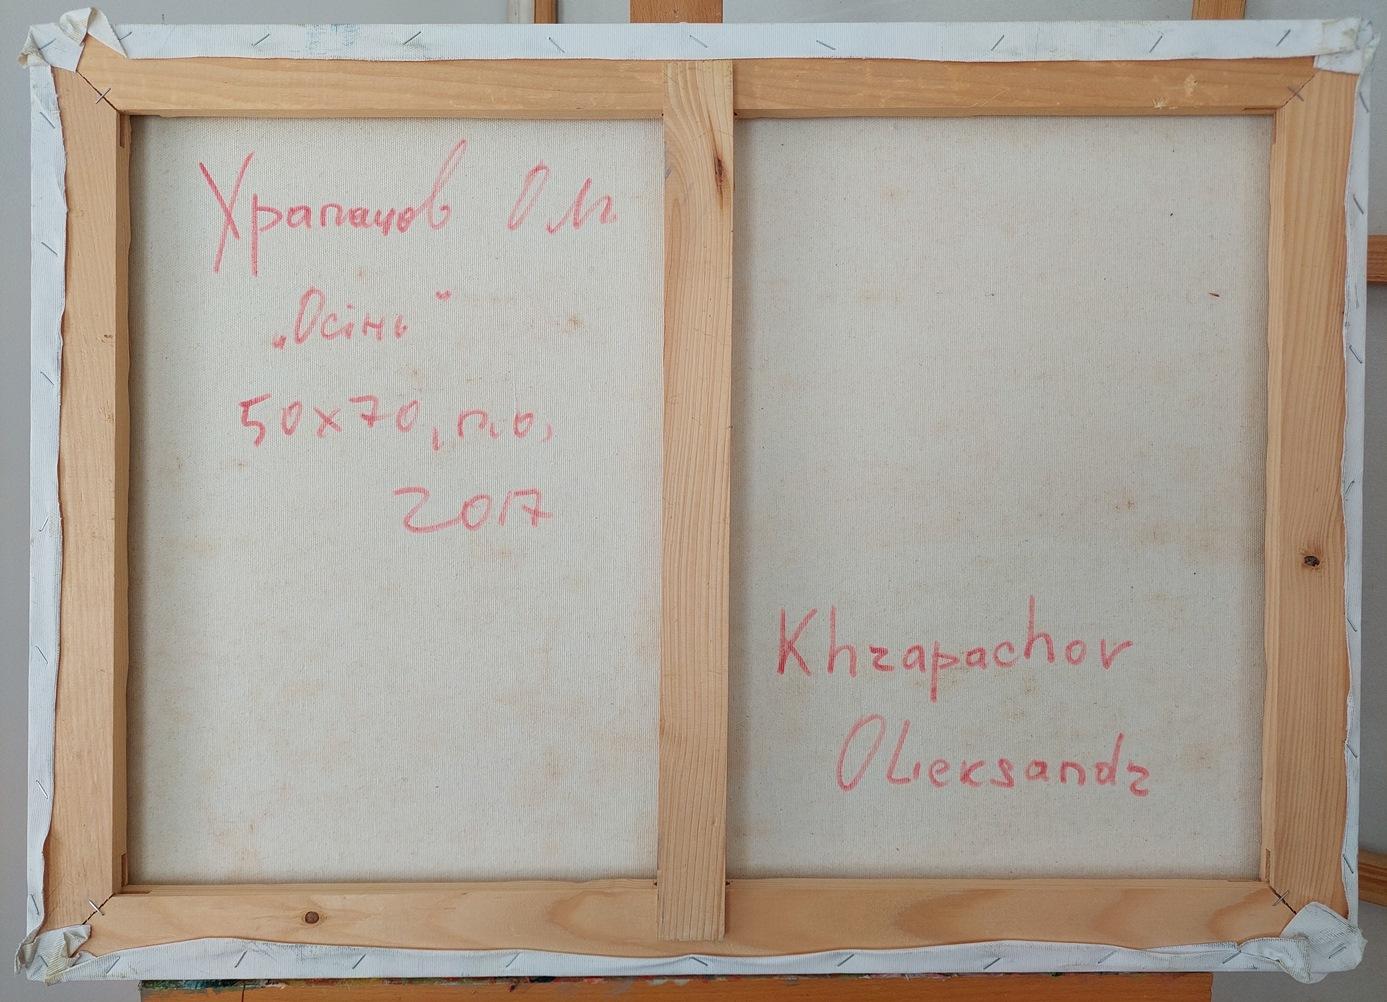 Храпачов О М
„Осінь"
50x70, п.о,
2017
Khrapachov
Oleksandr